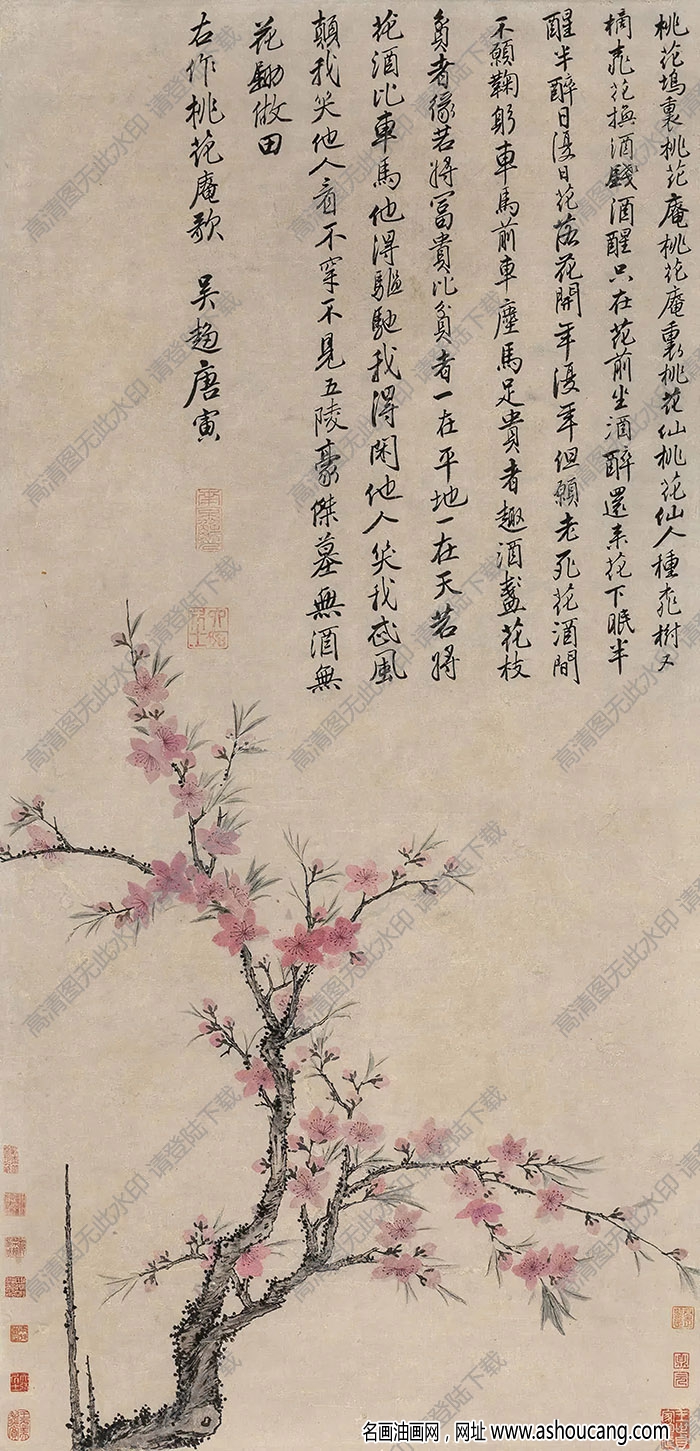 桃花塢裏桃花庵桃花庵裏桃花仙桃花仙人種桃樹又
摘桃花換酒錢酒醒只在花前坐酒醉還来花下眠半
醒半醉日復日花落花開年復年但願老死花酒間
不願鞠躬車馬前車塵馬足貴者趣酒盞花枝
貧者緣若將冨貴比貧者一在平地一在天若將
花酒比車馬他得驅馳我得閑他人笑我忒風
顛我笑他人看不穿不見五陵豪傑墓無酒無
花鋤做田
右作桃花庵歌 吳趨唐寅
高清图无此水印·请登陆下载
名画油画网，网址 www.ashoucang.com